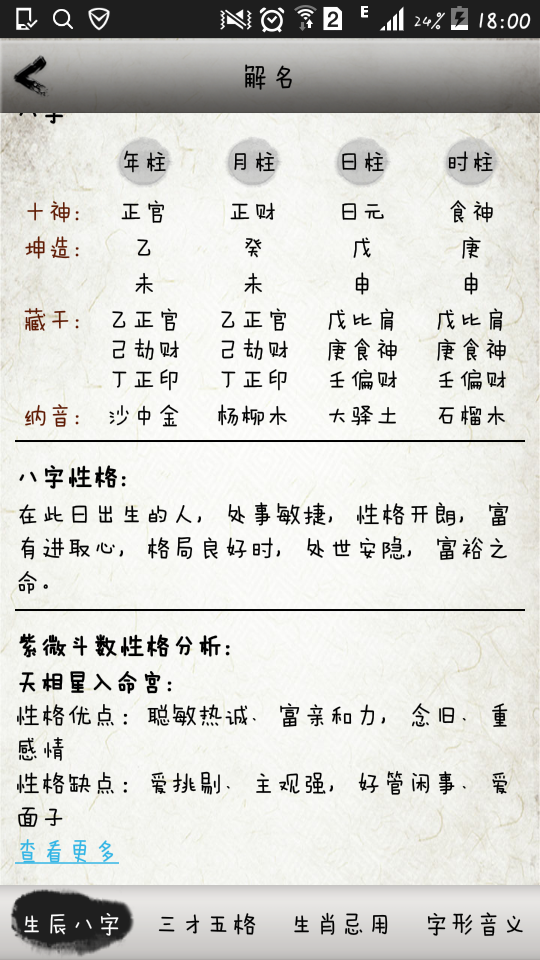 2 E 24% 18:00
解名
八字
年柱 月柱 日柱 时柱
十神: 正官 正财 日元 食神
坤造: 乙 癸 戊 庚
未 未 申 申
藏干: 乙正官 乙正官 戊比肩 戊比肩
己劫财 己劫财 庚食神 庚食神
丁正印 丁正印 壬偏财 壬偏财
纳音: 沙中金 杨柳木 大驿土 石榴木
八字性格:
在此日出生的人, 处事敏捷, 性格开朗, 富
有进取心, 格局良好时, 处世安隐, 富裕之
命。
紫微斗数性格分析:
天相星入命宫:
性格优点: 聪敏热诚、富亲和力, 念旧、重
感情
性格缺点: 爱挑剔、主观强, 好管闲事、爱
面子
查看更多
生辰八字 三才五格 生肖忌用 字形音义